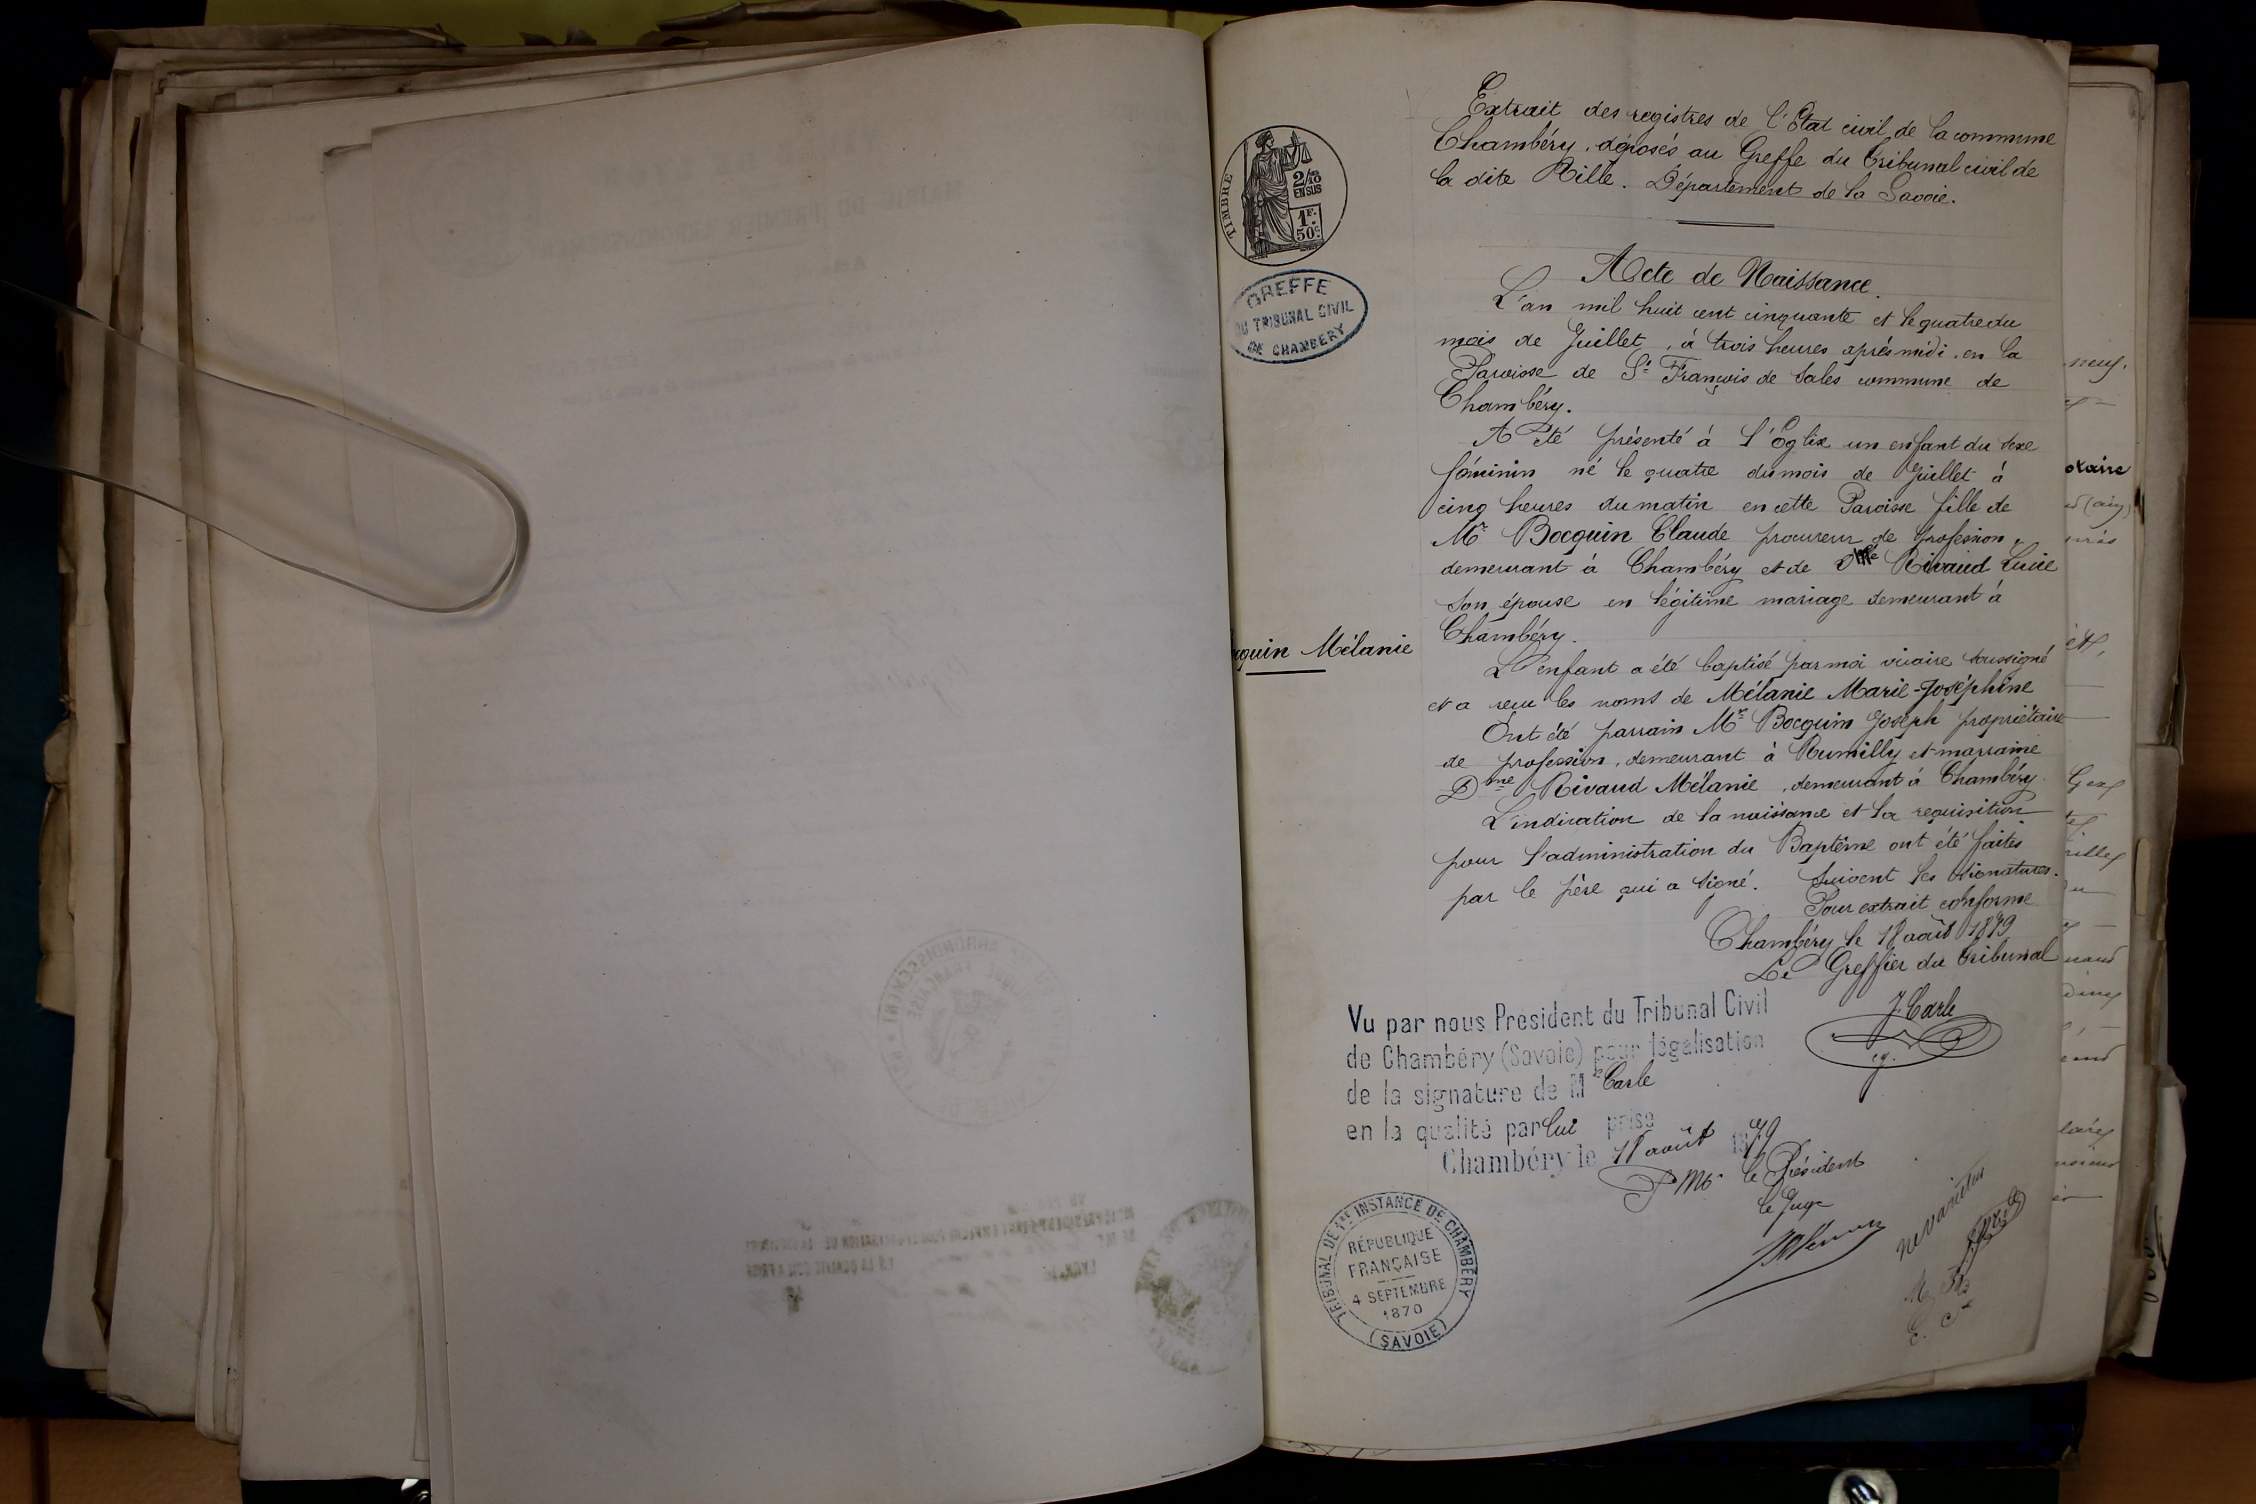 Extrait des registres de l'Etat civil de la commune
Chambéry, déposés au Greffe du Tribunal civil de
la dite Ville. Département de la Savoie.
TIMBRE
2/10
EN SUS
1F.
50c.
GREFFE
DU TRIBUNAL CIVIL
DE CHAMBERY
Acte de Naissance.
L'an mil huit cent cinquante et le quatre du
mois de Juillet, à trois heures après midi, en la
Paroisse de St François de Sales commune de
Chambéry.
A été présenté à l'Eglise un enfant du sexe
féminin né le quatre du mois de Juillet à
cinq heures du matin en cette Paroisse fille de
Mr Bocquin Claude procureur de profession,
demeurant à Chambéry et de Rivaud Lucie
son épouse en légitime mariage demeurant à
Chambéry.
cquin Mélanie
L'enfant a été baptisé par moi vicaire soussigné
et a reçu les noms de Mélanie Marie-Joséphine
Ont été parrain Mr Bocquin Joseph propriétaire
de profession, demeurant à Rumilly et marraine
Dme Rivaud Mélanie, demeurant à Chambéry.
L'indication de la naissance et la requisition
pour l'administration du Baptême ont été faites
par le père qui a signé. Suivent les signatures.
Pour extrait conforme
Chambéry le 18 août 1879
Le Greffier du tribunal
J. Carle
Vu par nous Président du Tribunal Civil
de Chambéry (Savoie) pour légalisation
de la signature de Mr Carle
en la qualité par lui prise
Chambéry le 18 août 1879
P. Mr le Président
le Juge
ne varietur
TRIBUNAL DE 1RE INSTANCE DE CHAMBÉRY
RÉPUBLIQUE
FRANÇAISE
4 SEPTEMBRE
1870
(SAVOIE)